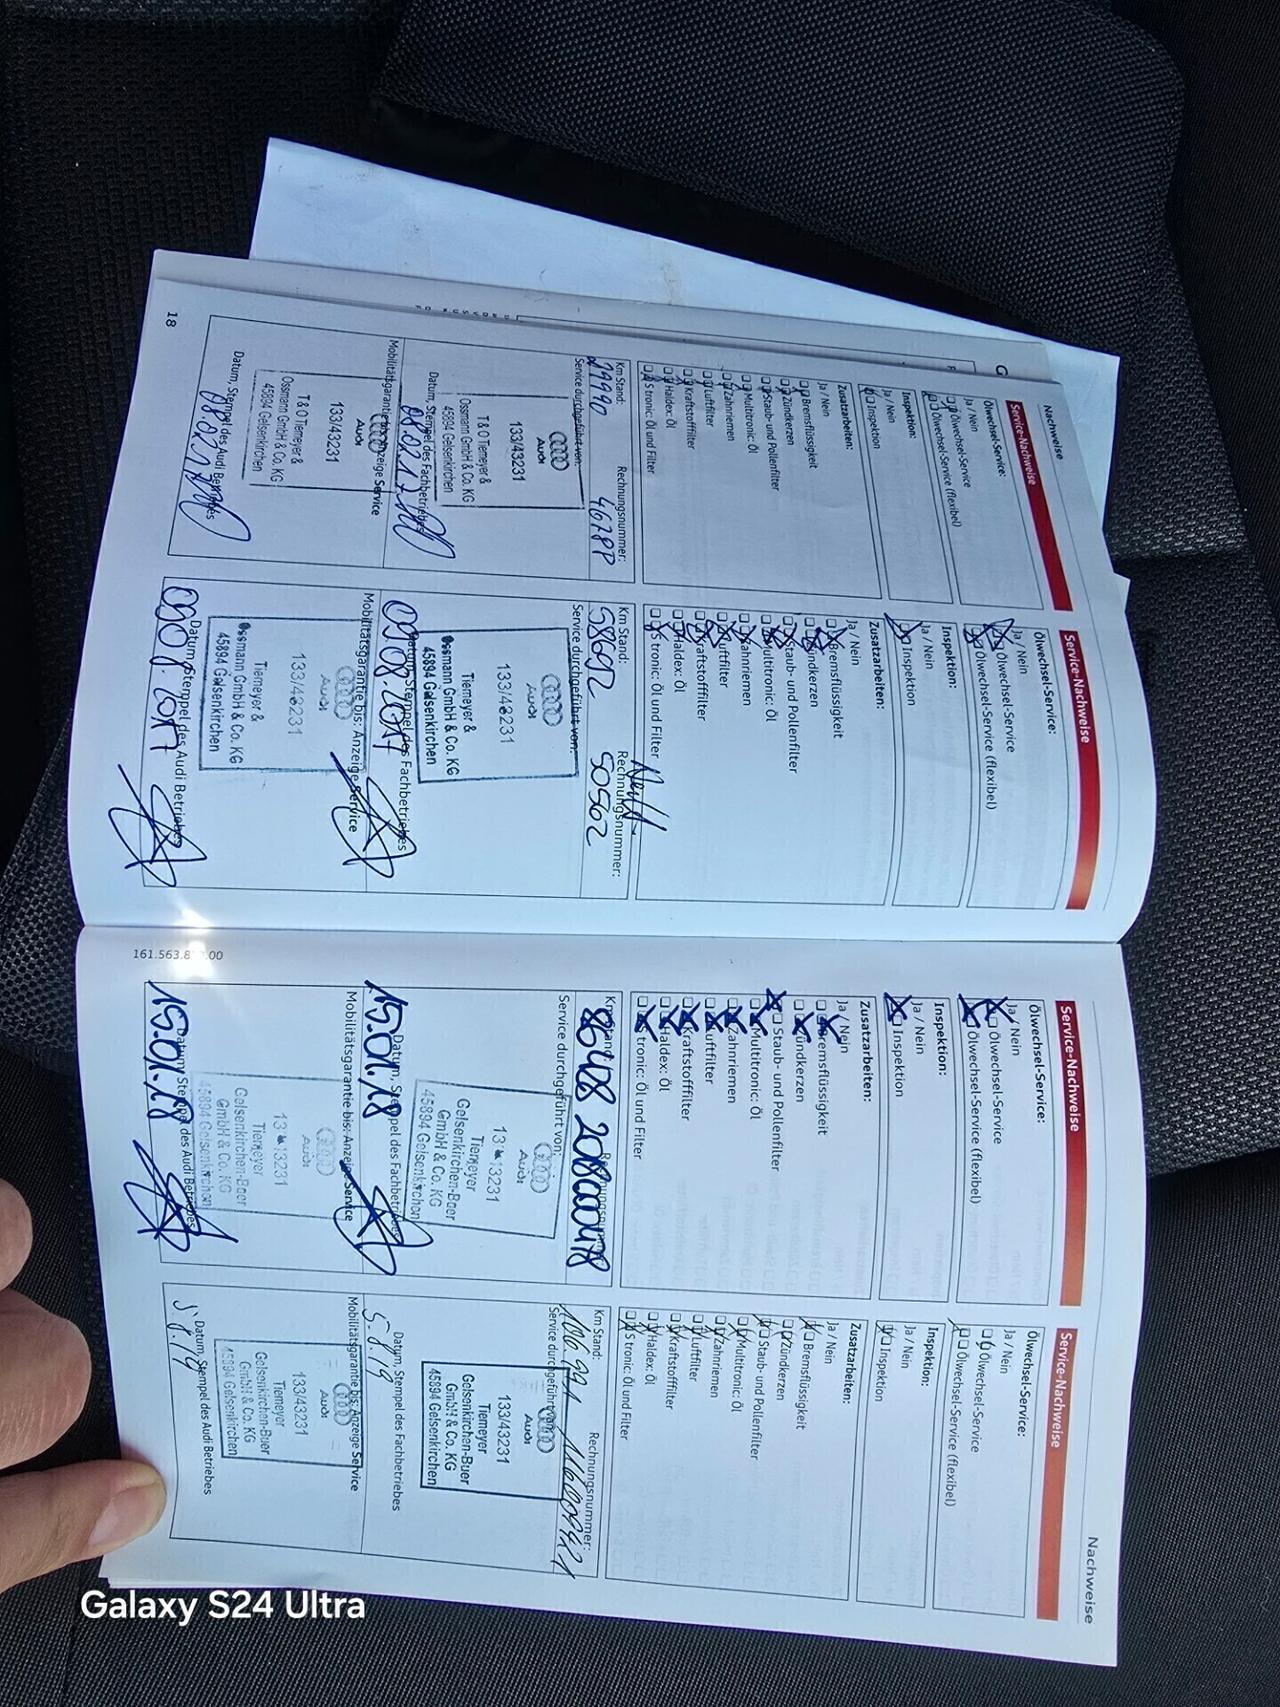 Nachweise
Service-Nachweise
Ölwechsel-Service:
Ja / Nein
Ölwechsel-Service
Ölwechsel-Service (flexibel)
Inspektion:
Ja / Nein
Inspektion
Zusatzarbeiten:
Ja / Nein
Bremsflüssigkeit
Zündkerzen
Staub- und Pollenfilter
Multitronic: Öl
Zahnriemen
Luftfilter
Kraftstofffilter
Haldex: Öl
S tronic: Öl und Filter
Km Stand: Rechnungsnummer:
Service durchgeführt von:
Audi
133/43231
T & O Tiemeyer &
Ossmann GmbH & Co. KG
45894 Gelsenkirchen
Datum, Stempel des Fachbetriebes
Mobilitätsgarantie bis: Anzeige Service
Audi
133/43231
T & O Tiemeyer &
Ossmann GmbH & Co. KG
45894 Gelsenkirchen
Datum, Stempel des Audi Betriebes
18
Service-Nachweise
Ölwechsel-Service:
Ja / Nein
Ölwechsel-Service
Ölwechsel-Service (flexibel)
Inspektion:
Ja / Nein
Inspektion
Zusatzarbeiten:
Ja / Nein
Bremsflüssigkeit
Zündkerzen
Staub- und Pollenfilter
Multitronic: Öl
Zahnriemen
Luftfilter
Kraftstofffilter
Haldex: Öl
S tronic: Öl und Filter
Km Stand: Rechnungsnummer:
58692 50562
Service durchgeführt von:
133/43231
Tiemeyer &
Ossmann GmbH & Co. KG
45894 Gelsenkirchen
09.08.2017
Datum, Stempel des Fachbetriebes
Mobilitätsgarantie bis: Anzeige Service
Audi
133/43231
Tiemeyer &
Ossmann GmbH & Co. KG
45894 Gelsenkirchen
09.08.2017
Datum, Stempel des Audi Betriebes
Service-Nachweise
Ölwechsel-Service:
Ja / Nein
Ölwechsel-Service
Ölwechsel-Service (flexibel)
Inspektion:
Ja / Nein
Inspektion
Zusatzarbeiten:
Ja / Nein
Bremsflüssigkeit
Zündkerzen
Staub- und Pollenfilter
Multitronic: Öl
Zahnriemen
Luftfilter
Kraftstofffilter
Haldex: Öl
S tronic: Öl und Filter
Km Stand: Rechnungsnummer:
Service durchgeführt von:
Audi
Tiemeyer
Gelsenkirchen-Buer
GmbH & Co. KG
45894 Gelsenkirchen
15.01.18
Datum, Stempel des Fachbetriebes
Mobilitätsgarantie bis: Anzeige Service
Audi
Tiemeyer
Gelsenkirchen-Buer
GmbH & Co. KG
45894 Gelsenkirchen
15.01.18
Datum, Stempel des Audi Betriebes
Nachweise
Service-Nachweise
Ölwechsel-Service:
Ja / Nein
Ölwechsel-Service
Ölwechsel-Service (flexibel)
Inspektion:
Ja / Nein
Inspektion
Zusatzarbeiten:
Ja / Nein
Bremsflüssigkeit
Zündkerzen
Staub- und Pollenfilter
Multitronic: Öl
Zahnriemen
Luftfilter
Kraftstofffilter
Haldex: Öl
S tronic: Öl und Filter
Km Stand: Rechnungsnummer:
Service durchgeführt von:
Audi
133/43231
Tiemeyer
Gelsenkirchen-Buer
GmbH & Co. KG
45894 Gelsenkirchen
5.8.19
Datum, Stempel des Fachbetriebes
Mobilitätsgarantie bis: Anzeige Service
Audi
133/43231
Tiemeyer
Gelsenkirchen-Buer
GmbH & Co. KG
45894 Gelsenkirchen
5.8.19
Datum, Stempel des Audi Betriebes
Galaxy S24 Ultra